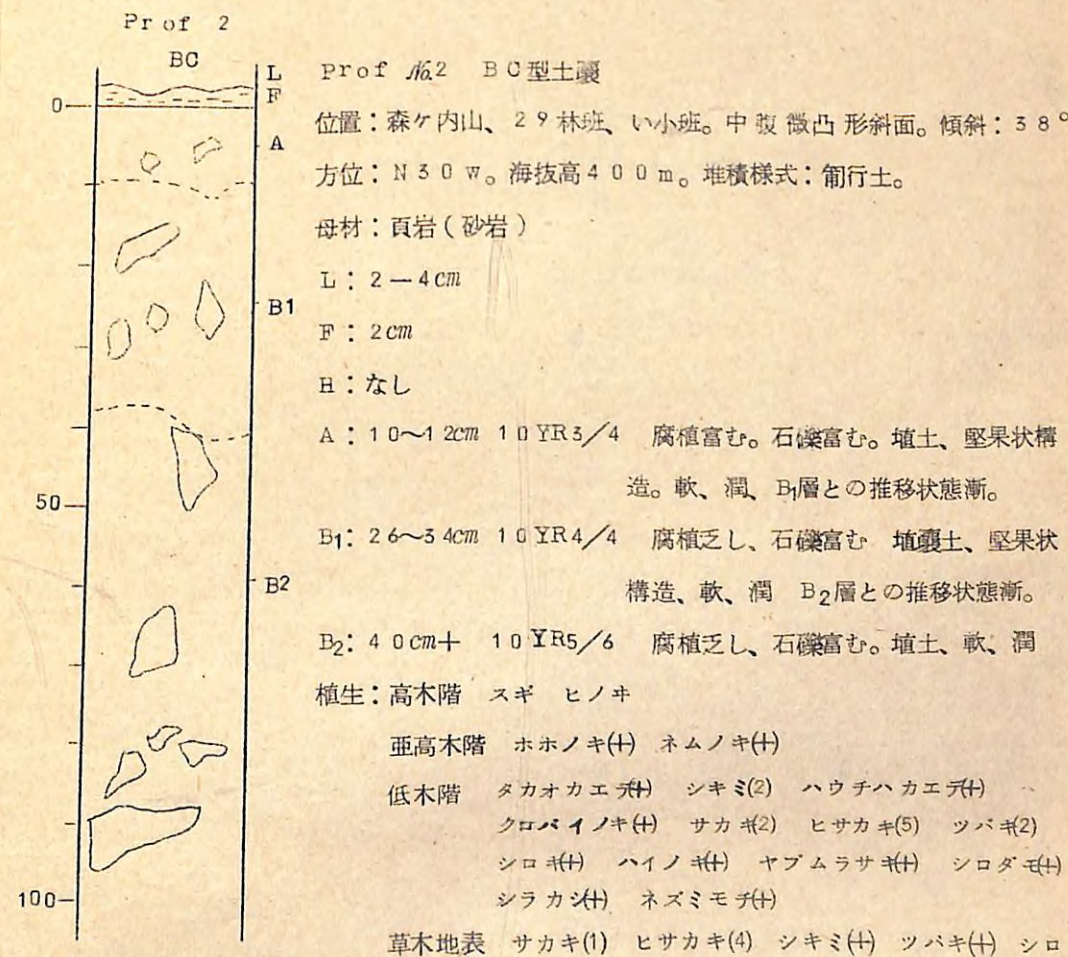 Prof 2
BC
L
F
0
A
B1
50
B2
100
Prof №2 BC型土壤
位置：森ケ内山、29林班、い小班。中腹微凸形斜面。傾斜：38°
方位：N30w。海抜高400m。堆積様式：匍行土。
母材：頁岩（砂岩）
L：2—4cm
F：2cm
H：なし
A：10～12cm 10YR3/4 腐植富む。石礫富む。埴土、堅果状構
造。軟、潤、B1層との推移状態漸。
B1：26～34cm 10YR4/4 腐植乏し、石礫富む 埴壤土、堅果状
構造、軟、潤 B2層との推移状態漸。
B2：40cm＋ 10YR5/6 腐植乏し、石礫富む。埴土、軟、潤
植生：高木階 スギ ヒノキ
亜高木階 ホホノキ(+) ネムノキ(+)
低木階 タカオカエデ(+) シキミ(2) ハウチハカエデ(+)
クロバイノキ(+) サカキ(2) ヒサカキ(5) ツバキ(2)
シロキ(+) ハイノキ(+) ヤブムラサキ(+) シロダモ(+)
シラカシ(+) ネズミモチ(+)
草木地表 サカキ(1) ヒサカキ(4) シキミ(+) ツバキ(+) シロ